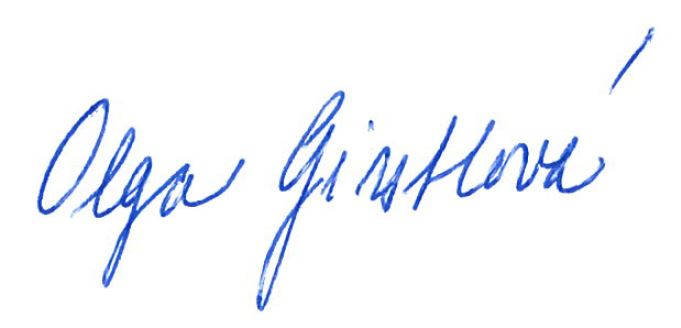 Olga Girstlová